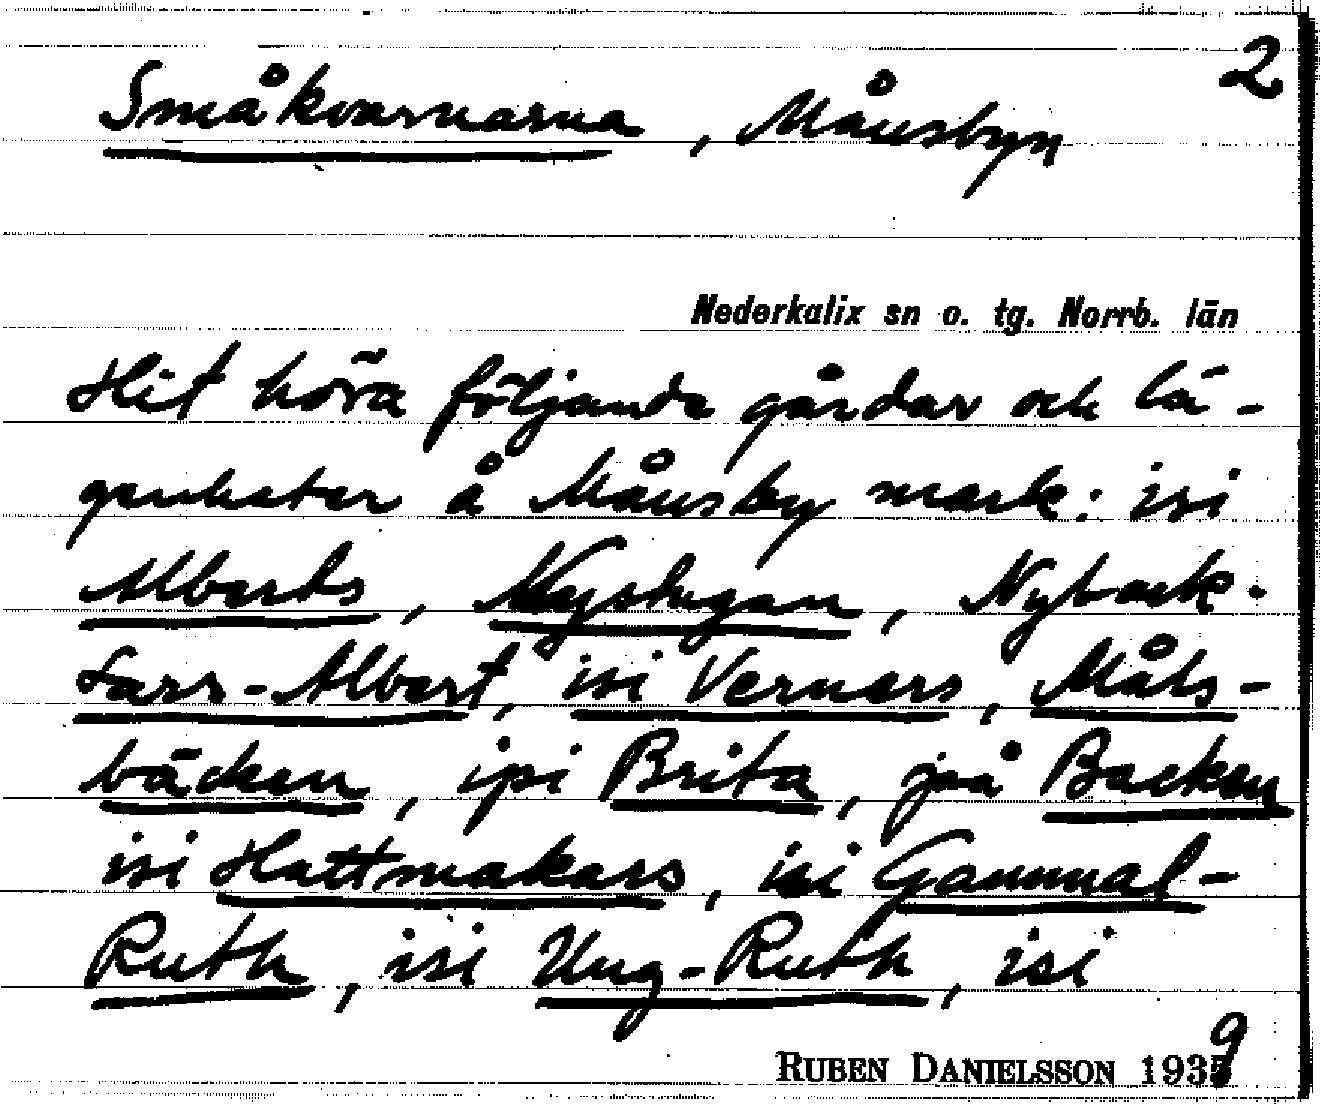 2
Småkvarnarna, Månsbyn
Nederkalix sn o. tg. Norrb. län
Hit höra följande gårdar och lä-
genheter å Månsby mark: isi
Alberts, Nystugan, Nyback-
Lars-Albert, isi Verners, Måls-
bäcken, ipi Brita, på Backen
isi Hattmakars, isi Gammal-
Ruth, isi Ung-Ruth, isi
RUBEN DANIELSSON 1939